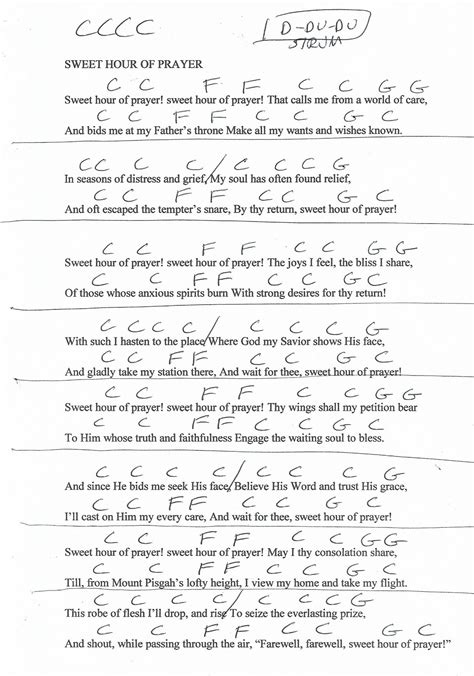 C C C C
D-DU-DU
STRUM
SWEET HOUR OF PRAYER
C C F F C C G G
Sweet hour of prayer! sweet hour of prayer! That calls me from a world of care,
C C F F C C G C
And bids me at my Father's throne Make all my wants and wishes known.
C C C C / C C C G
In seasons of distress and grief, My soul has often found relief,
C C F F C C G C
And oft escaped the tempter's snare, By thy return, sweet hour of prayer!
C C F F C C G G
Sweet hour of prayer! sweet hour of prayer! The joys I feel, the bliss I share,
C C F F C C G C
Of those whose anxious spirits burn With strong desires for thy return!
C C C C / C C C G
With such I hasten to the place Where God my Savior shows His face,
C C F F C C G C
And gladly take my station there, And wait for thee, sweet hour of prayer!
C C F F C C G G
Sweet hour of prayer! sweet hour of prayer! Thy wings shall my petition bear
C C F F C C G C
To Him whose truth and faithfulness Engage the waiting soul to bless.
C C C C / C C C G
And since He bids me seek His face, Believe His Word and trust His grace,
C C F F C C G C
I'll cast on Him my every care, And wait for thee, sweet hour of prayer!
C C F F C C G G
Sweet hour of prayer! sweet hour of prayer! May I thy consolation share,
C C F F C C G C
Till, from Mount Pisgah's lofty height, I view my home and take my flight.
C C C C / C C C G
This robe of flesh I'll drop, and rise To seize the everlasting prize,
C C F F C C G C
And shout, while passing through the air, "Farewell, farewell, sweet hour of prayer!"